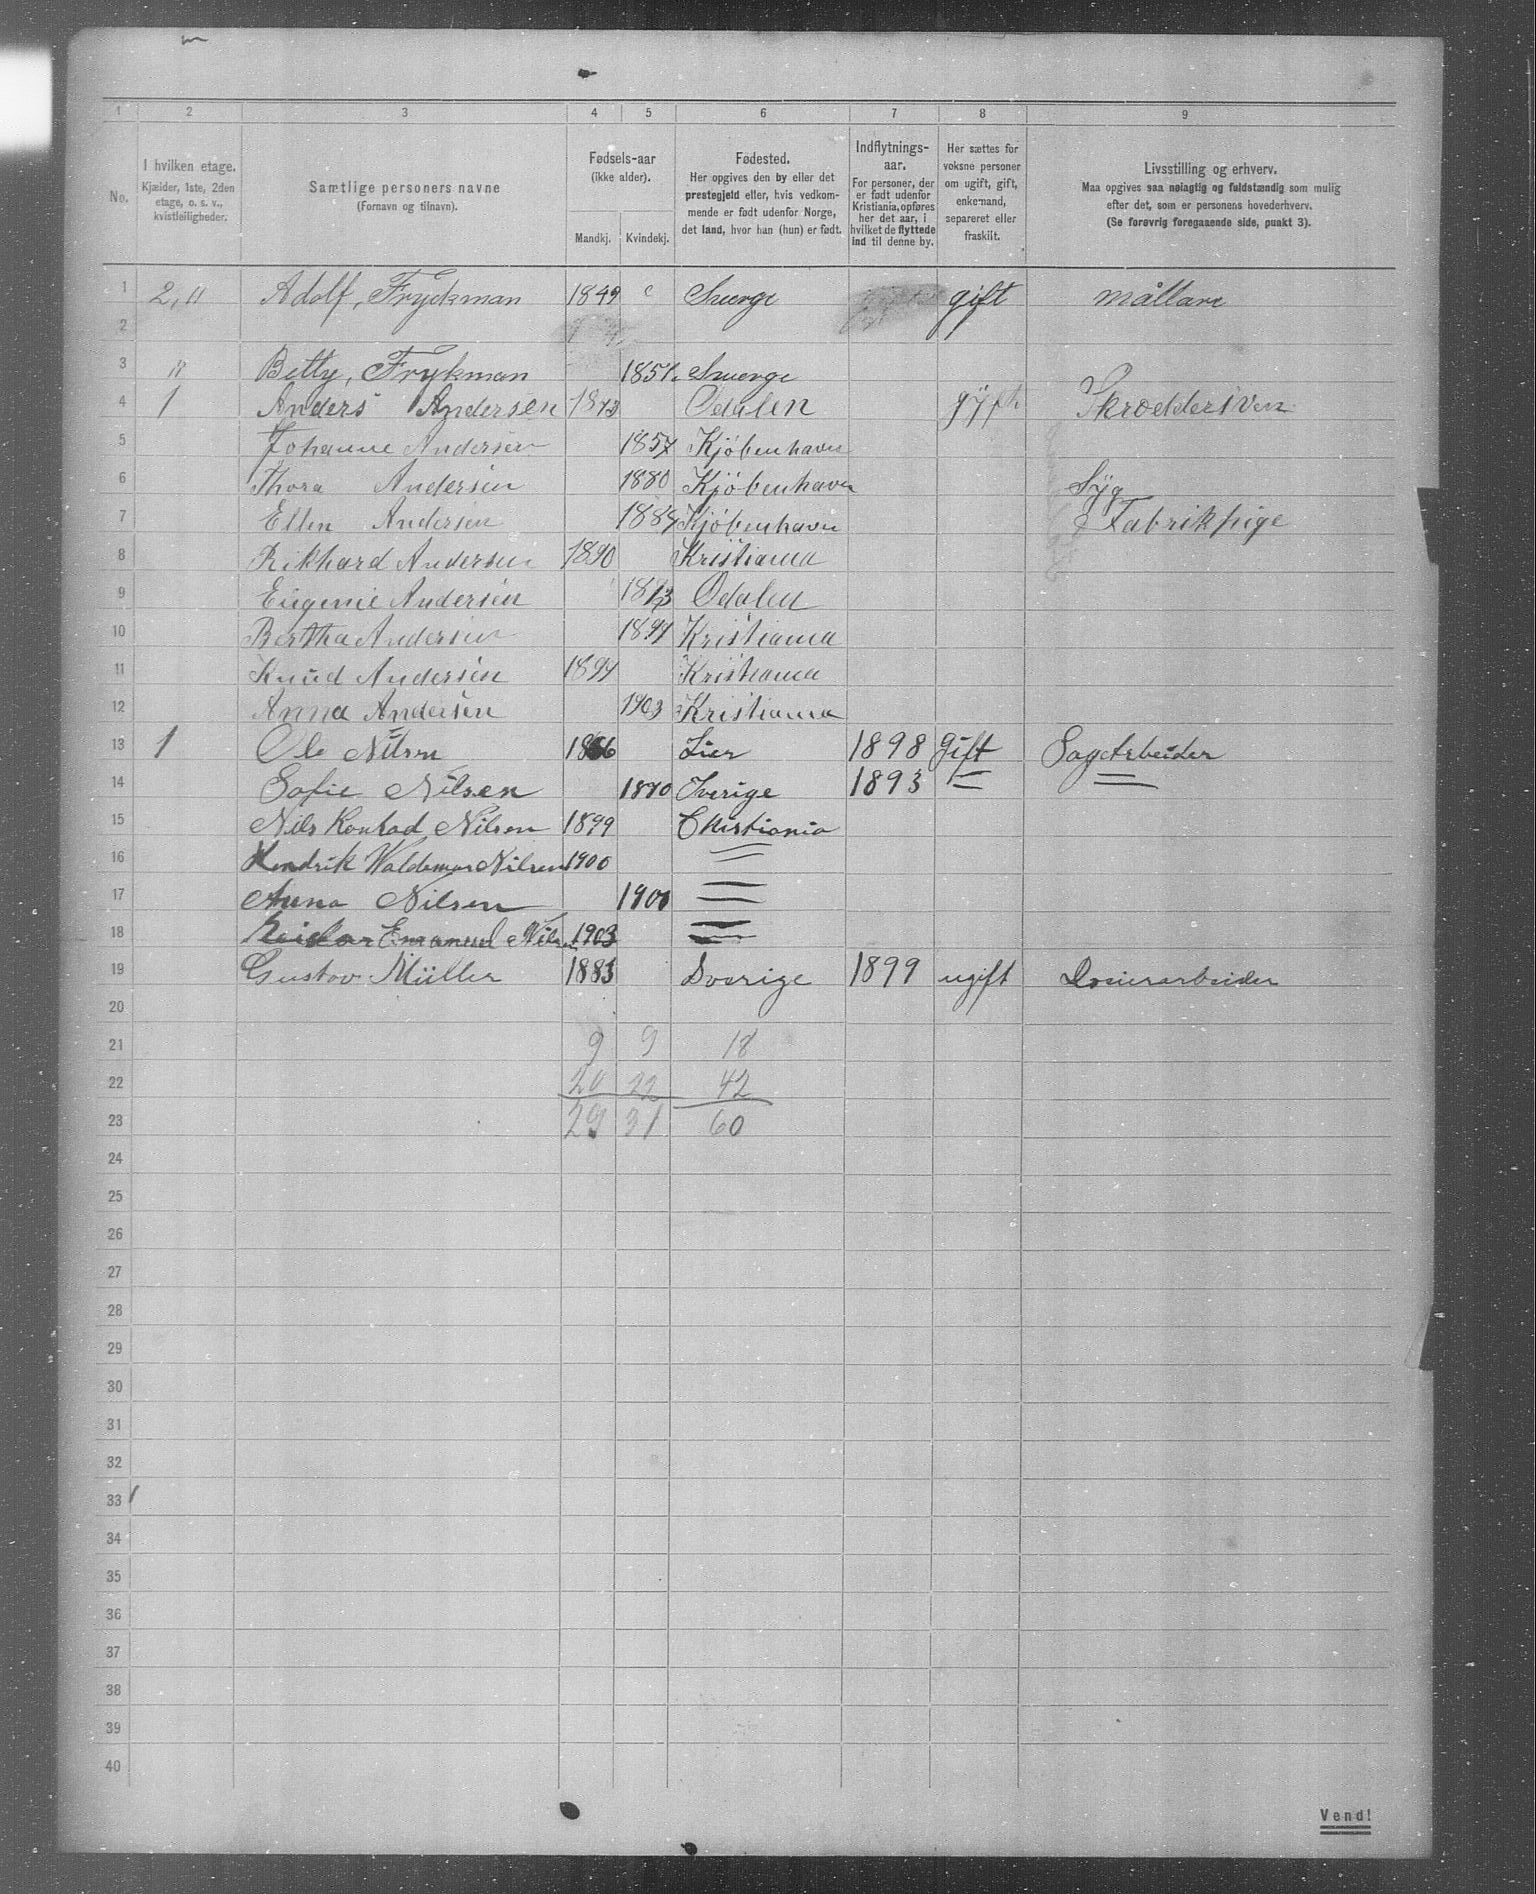 1 2 3 4 5 6 7 8 9
No.
I hvilken etage.
Kjælder, 1ste, 2den
etage, o. s. v.,
kvistleiligheder.
Samtlige personers navne
(Fornavn og tilnavn).
Fødsels-aar
(ikke alder).
Mandkj. Kvindekj.
Fødested.
Her opgives den by eller det
prestegjeld eller, hvis vedkom-
mende er født udenfor Norge,
det land, hvor han (hun) er født.
Indflytnings-
aar.
For personer, der
er født udenfor
Kristiania, opføres
her det aar, i
hvilket de flyttede
ind til denne by.
Her sættes for
voksne personer
om ugift, gift,
enkemand,
separeret eller
fraskilt.
Livsstilling og erhverv.
Maa opgives saa nøiagtig og fuldstændig som mulig
efter det, som er personens hovederhverv.
(Se forøvrig foregaaende side, punkt 3).
1 2, Adolf, Fryckman 1849 Sverge gift mållare
2
3 " Betty, Frykman 1851 Sverge
4 1 Anders Andersen Odalen
5 Johanne Andersen 1857 Kjöbenhavn
6 Thora Andersen 1880 Kjöbenhavn Syg
7 Ellen Andersen Kjöbenhavn Fabrikpige
8 Rikhard Andersen 1890 Kristiania
9 Eugenie Andersen Odalen
10 Bertha Andersen Kristiania
11 Knud Andersen Kristiania
12 Anna Andersen 1903 Kristiania
13 1 Ole Nilsen 1866 Lier 1898 Gift Sagarbeider
14 Sofie Nilsen 1870 Sverige 1893 = =
15 Nils Konrad Nilsen 1899 Christiania
16 Hendrik Waldemar Nilsen 1900 =
17 Anna Nilsen 1901 =
18 Reidar Emanuel Nilsen 1903 =
19 Gustav Müller 1883 Sverige 1899 ugift
20
21 9 9 18
22 20 22 42
23 29 31 60
24
25
26
27
28
29
30
31
32
33
34
35
36
37
38
39
40
Vend!